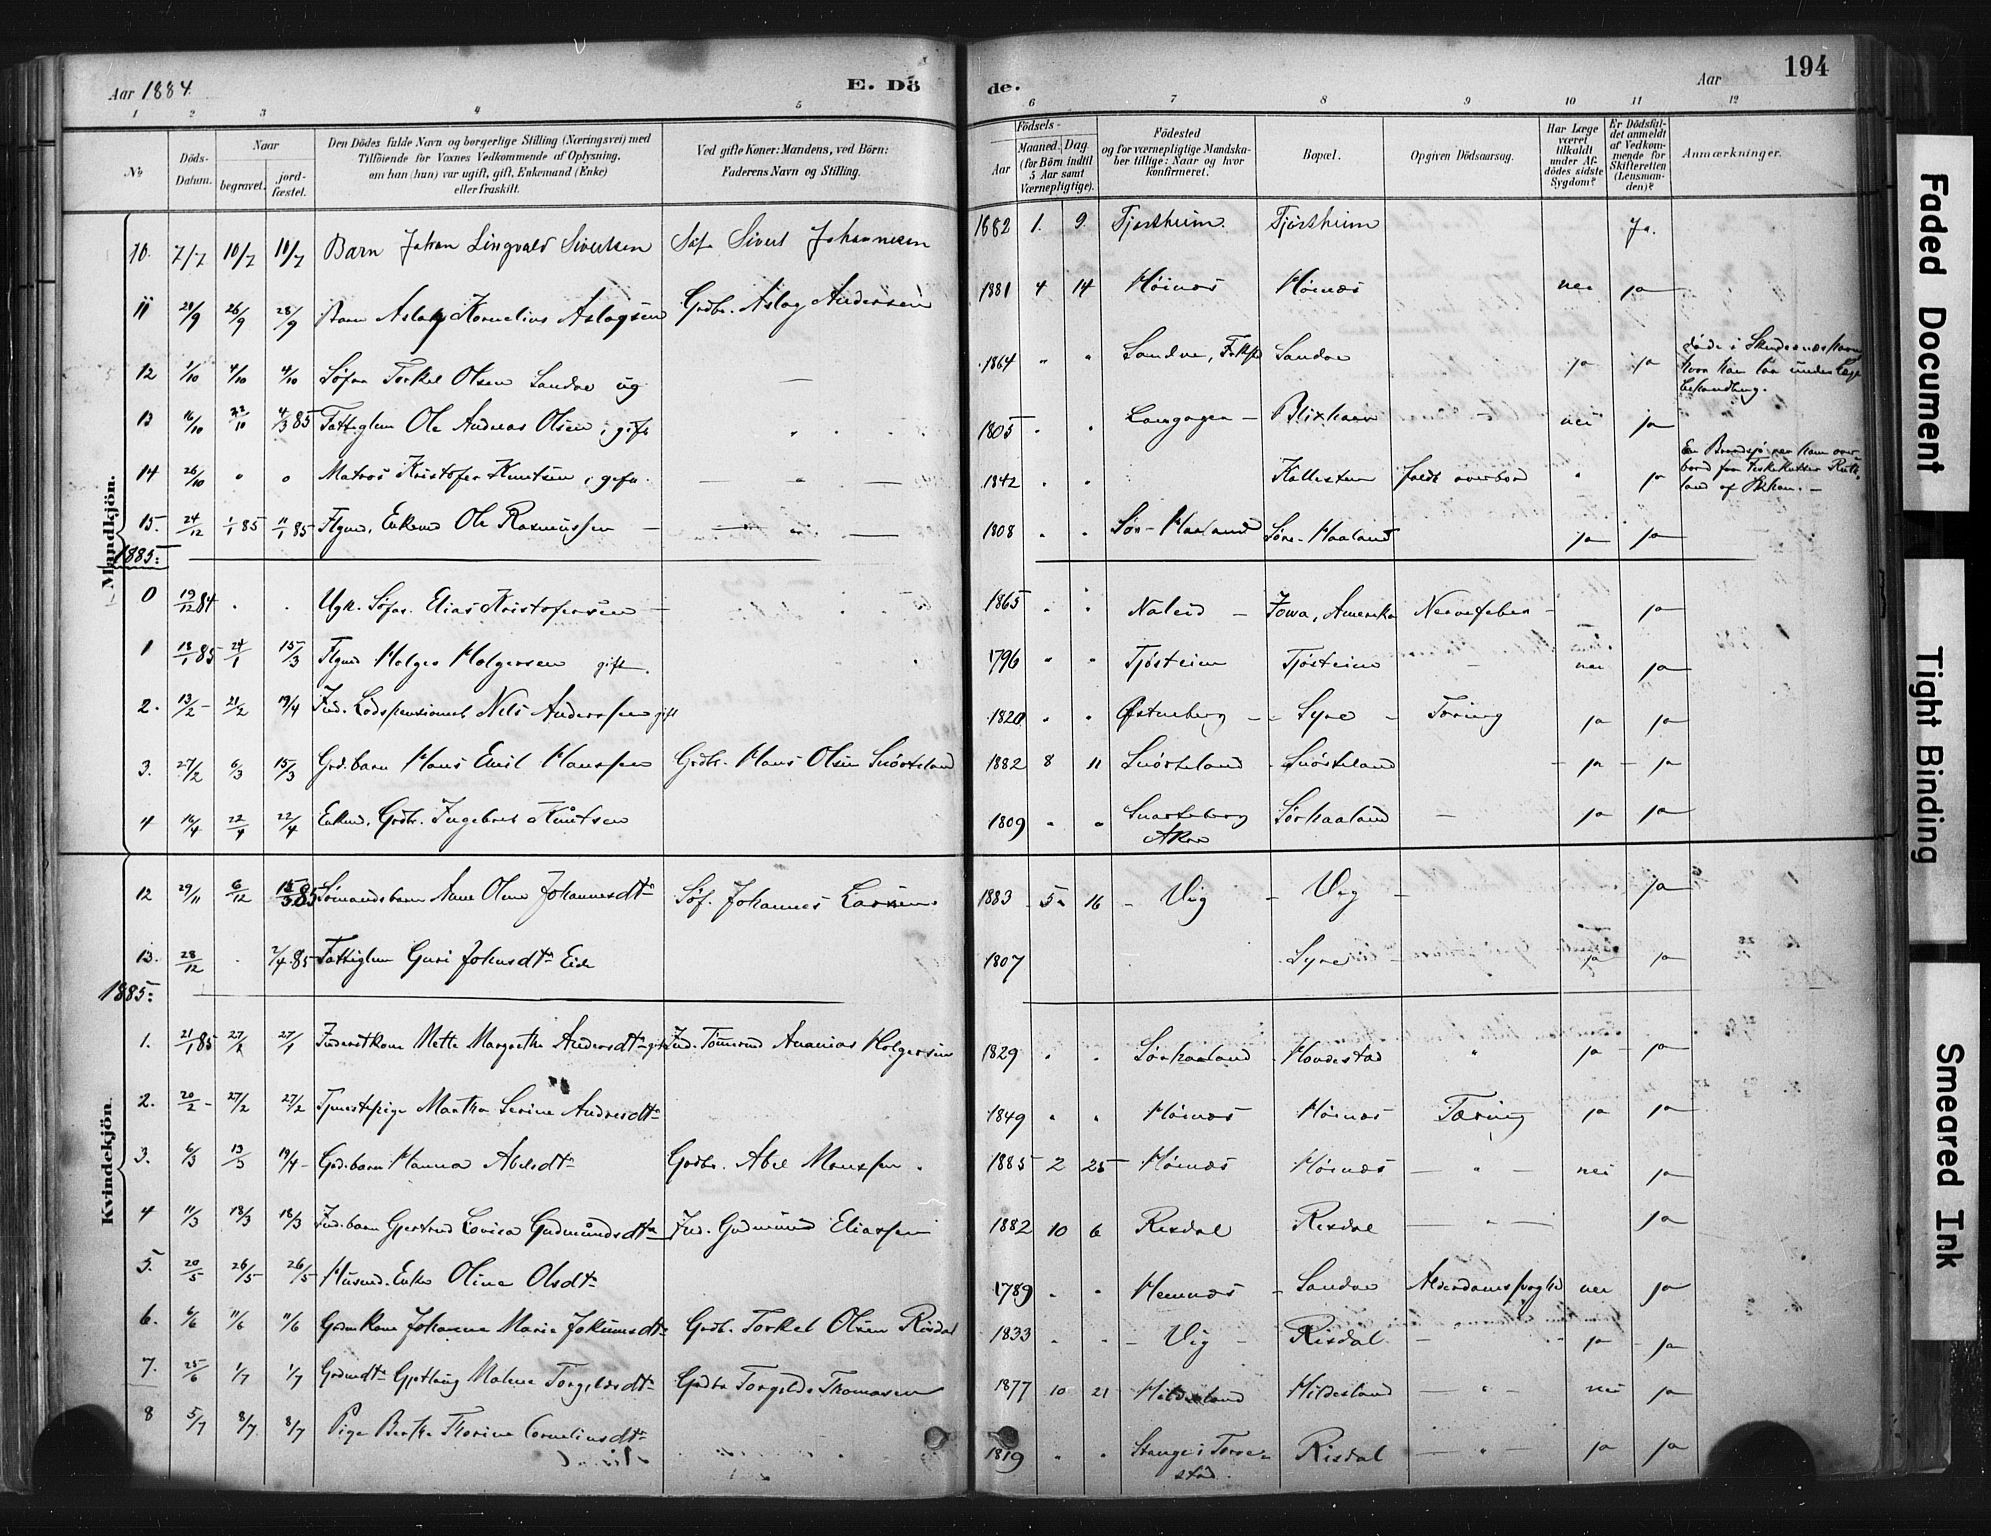 Aar 1884.
E. Dö
de.
Aar
194
1 2 3 4 5 6 7 8 9 10 11 12
№
Döds-Datum.
Naar
begravet.
jord-fæstet.
Den Dödes fulde Navn og borgerlige Stilling (Næringsvei) med
Tilföiende for Voxnes Vedkommende af Oplysning,
om han (hun) var ugift, gift, Enkemand (Enke)
eller fraskilt.
Ved gifte Koner: Mandens, ved Börn:
Faderens Navn og Stilling.
Födsels-
Aar
Maaned. Dag.
(for Börn indtil
5 Aar samt
Værnepligtige).
Födested
og for værnepligtige Mandska-
ber tillige: Naar og hvor
konfirmeret.
Bopæl.
Opgiven Dödsaarsag.
Har Læge
været
tilkaldt
under Af-
dödes sidste
Sygdom?
Er Dödsfal-
det anmeldt
af Vedkom-
mende for
Skifteretten
(Lensman-
den)?
Anmærkninger.
Mandkjön.
10. 7/7 10/7 10/7 Barn Johan Lingvald Sivertsen Søf. Sivert Johannesen 1882 1. 9. Tjøstheim. Tjøstheim Ja.
11 21/9 26/9 28/9 Barn Aslag Kornelius Aslagsen Grdbr. Aslag Andersen 1881 4 14 Høinæs Høinæs nei ja
12 1/10 4/10 4/10 Søfar Torkel Olsen Sandve ug. — 1864 " " Sandve, Sandve ja ja døde i Skudesneshavn
hvor han laa under Læge
behandling.
13 16/10 22/10 4/3 85 Fattiglem Ole Andreas Olsen, gift 1805 " " Langaager — Blixhavn nei ja
14 26/10 " " Matros Kristofer Knutsen, gift. 1842 " " Kallesten faldt overbord " ja En Brodsjø rev ham over-
bord fra Fiskekutter
land af
15. 24/12 1/1 85 11/1 85 Flgmd. Enkemd Ole Rasmussen — 1808 " " Sør-Haaland Søre-Haaland ja ja
1885:
0 19/12 84 " " Ugk. Søfar. Elias Kristofersen — 1865 " " Naleid — Iowa, Amerika Nervefeber — ja
1 18/1 85 24/1 15/3 Flgmd Holger Holgersen gift. 1796 " " Tjøsteim Tjøsteim nei ja
2. 13/2 — 21/2 19/4 Ind. Lodspensionist Nels Anderssen gift 1820 " " Østenberg — Syre — Tæring ja ja
3. 27/2 6/3 15/3 Grd.barn Hans Emil Hanssen Grdbr. Hans Olsen Snørteland 1882 8 11 Snørteland Snørteland — ja — ja
4 16/4 22/4 22/4 Enkmd. Grdbr. Ingebret Knutsen 1809 " " Snarteberg
Akre Sørhaaland — ja ja
Kvindekjön.
12 29/11 6/12 15/3 85 Sømandsbarn Anne Oline Johannesdtr Søf. Johannes Larsen 1883 5 16 — Vig — Vig — ja
13. 28/12 " 2/4 85 Fattiglem Guri Johnsdtr Eide 1807 Syre ja ja
1885:
1. 21/1 85 27/1 27/1 Inderstkone Mette Margrethe Andersdtr gift Ind. Tømmermd Ananias Holgersen 1829 " " Sørhaaland Hovdestad " ja ja
2. 20/2 — 27/2 27/2 Tjenestepige Martha Serine Andresdtr 1849 " " Høinæs Høinæs Tæring ja ja
3. 6/3 13/3 19/4 — Grd.barn Hanna Abelsdtr Grdbr. Abel Monssen. 1885 2 25 Høinæs Høinæs — " — nei ja
4 11/3 18/3 18/3 Ind.barn Gjertrud Lovisa Gudmundsdtr Ind. Gudmund Eliassen 1882 10 6 Risdal Risdal — " — ja
5. 20/5 26/5 26/5 Husmd. Enke Oline Olsdtr 1789 " " Hemnæs — Sandve Alderdomssvaghd nei ja
6. 6/6 11/6 11/6 Grdm.kone Johanne Marie Jokumsdtr Grdb. Torkel Olsen Risdal 1833 " " — Vig — Risdal — " — ja — ja
7. 25/6 1/7 1/7 Grdmdtr Gjetlaug Malene Torgilsdtr Grdbr Torgils Thomasen 1877 10 21 Hildesland Hildesland — " — nei ja
8 5/7 8/7 8/7 Pige Berthe Thorine Corneliusdtr 1819 " " Stange i Torve-
stad Risdal — " — ja ja
Faded Document
Tight Binding
Smeared Ink